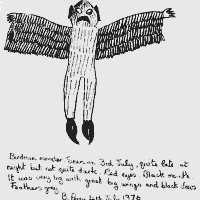 Birdman monster. Seen on 3rd July, quite late at
night but not quite dark. Red eyes. Black mouth.
It was very big with great big wings and black claws.
Feathers grey.
B. Perry 4th July 1976